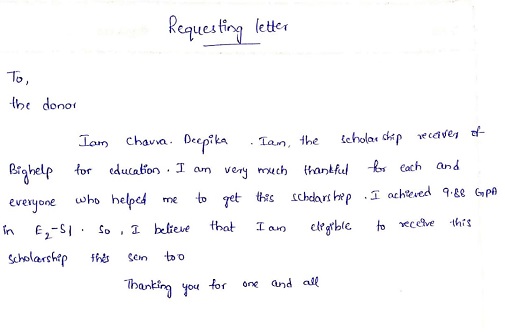 Requesting letter
To,
the donor
Iam Chavva. Deepika. Iam, the scholarship receiver of
Bighelp for education. I am very much thankful for each and
everyone who helped me to get this scholarship. I achieved 9.88 GPA
in E2-S1. So, I believe that I am eligible to receive this
scholarship this sem too
Thanking you for one and all